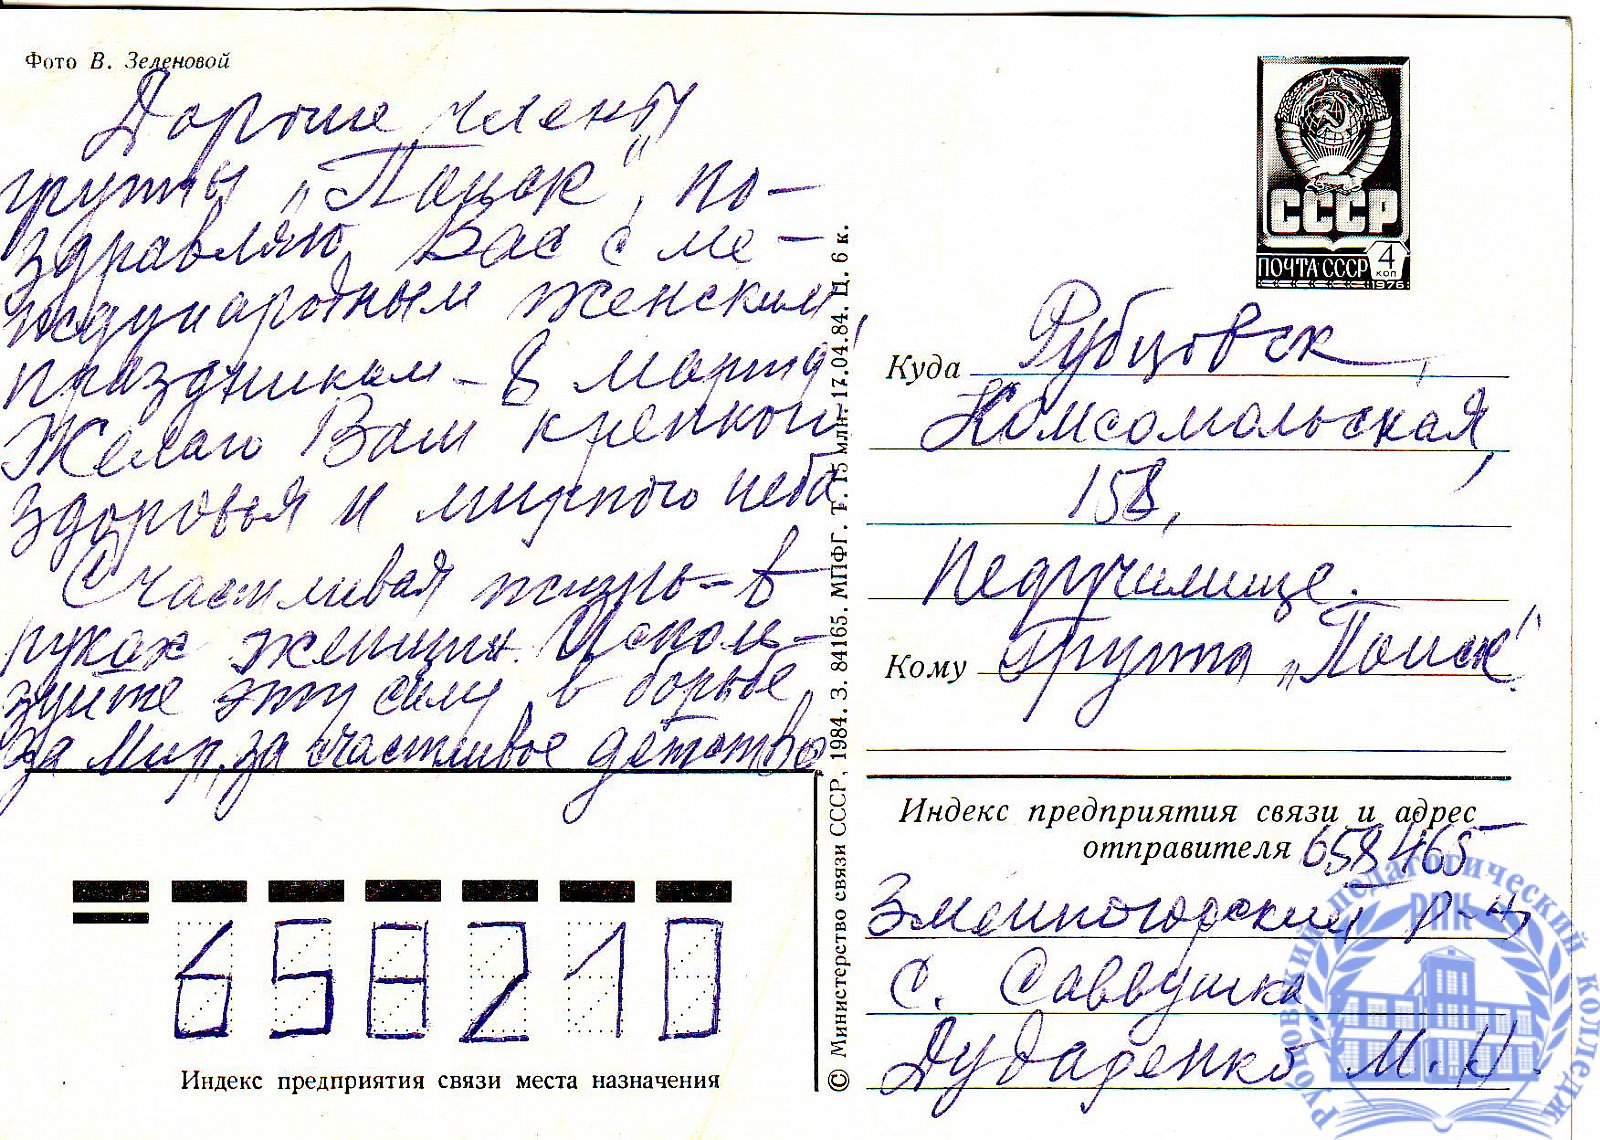 Фото В. Зеленовой
Дорогие члены
группы „Поиск“, по-
здравляю Вас с ме-
ждународным женским
праздником – 8 марта!
Желаю Вам крепкого
здоровья и мирного неба
Счастливая жизнь – в
руках женщин. Исполь-
зуйте эту силу в борьбе
за Мир, за счастливое детство
СССР
ПОЧТА СССР 4 коп
1976
Куда Рубцовск,
Комсомольская,
158,
педучилище.
Кому Группа „Поиск“.
Индекс предприятия связи и адрес
отправителя 658465
Змеиногорский р-н
с. Саввушка
Дударенко М. Н.
658210
Индекс предприятия связи места назначения
© Министерство связи СССР, 1984. З. 84165. МПФГ. Т. 15 млн. 17.04.84. Ц. 6 к.
Рубцовский педагогический колледж
РПК